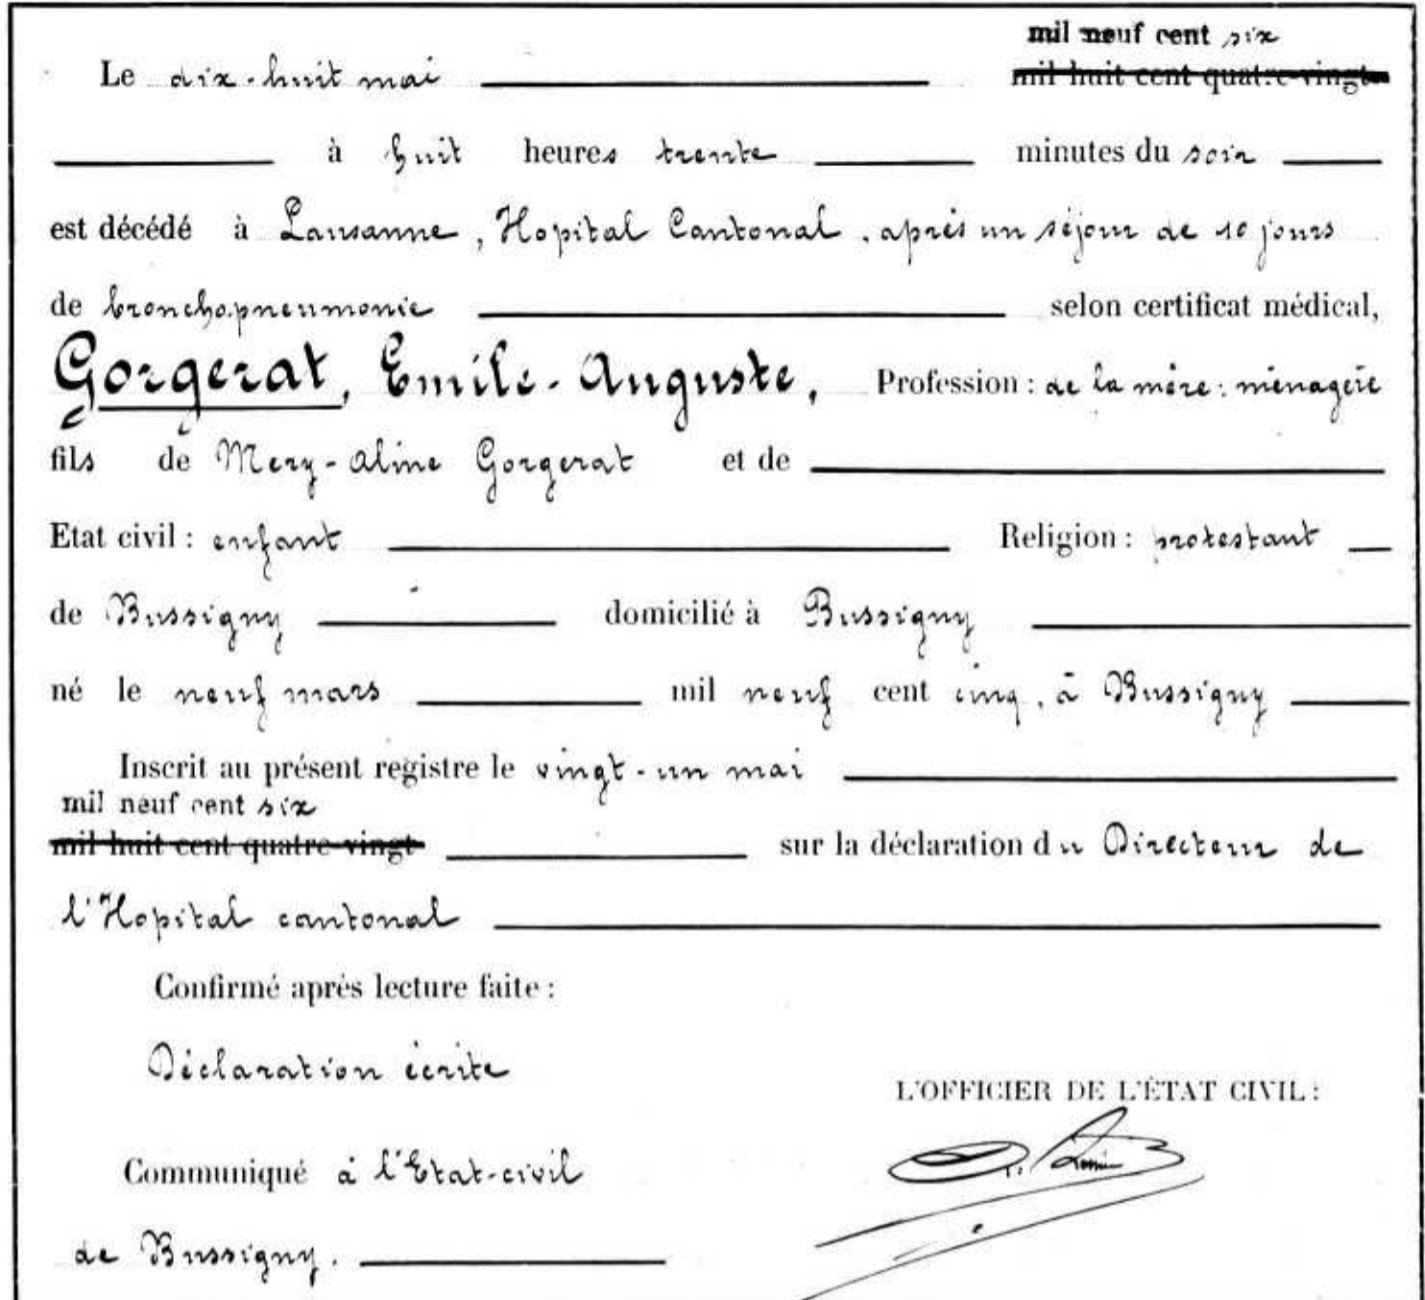 mil neuf cent six
Le dix-huit mai mil huit cent quatre-vingt
à huit heures trente minutes du soir
est décédé à Lausanne, Hopital Cantonal, après un séjour de 10 jours
de bronchopneumonie selon certificat médical,
Gorgerat, Emile-Auguste, Profession : de la mère: ménagère
fils de Mery-Aline Gorgerat et de
Etat civil : enfant Religion : protestant
de Bussigny domicilié à Bussigny
né le neuf mars mil neuf cent cinq, à Bussigny
Inscrit au présent registre le vingt-un mai
mil neuf cent six
mil huit cent quatre-vingt sur la déclaration du Directeur de
l'Hopital cantonal
Confirmé après lecture faite :
Déclaration écrite
L'OFFICIER DE L'ÉTAT CIVIL :
Communiqué à l'Etat-civil
de Bussigny.